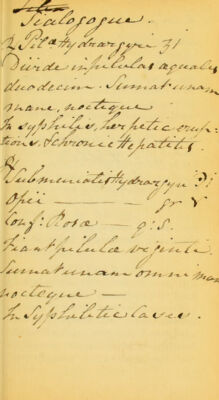 Sialogogue.
Pil: Hydrargyri ʒi
Divide in pilulas aquales
duodecim. Sumat unam
mane, nocteque
In syphilis, herpetic erup-
tions, & chronic Hepatitis.
Submuriatis Hydrargyri
Opii — gr v
Conf: Rosæ — q:s.
Fiant pilulæ viginti.
Sumat unam omni mane
nocteque —
In Syphilitic Cases.